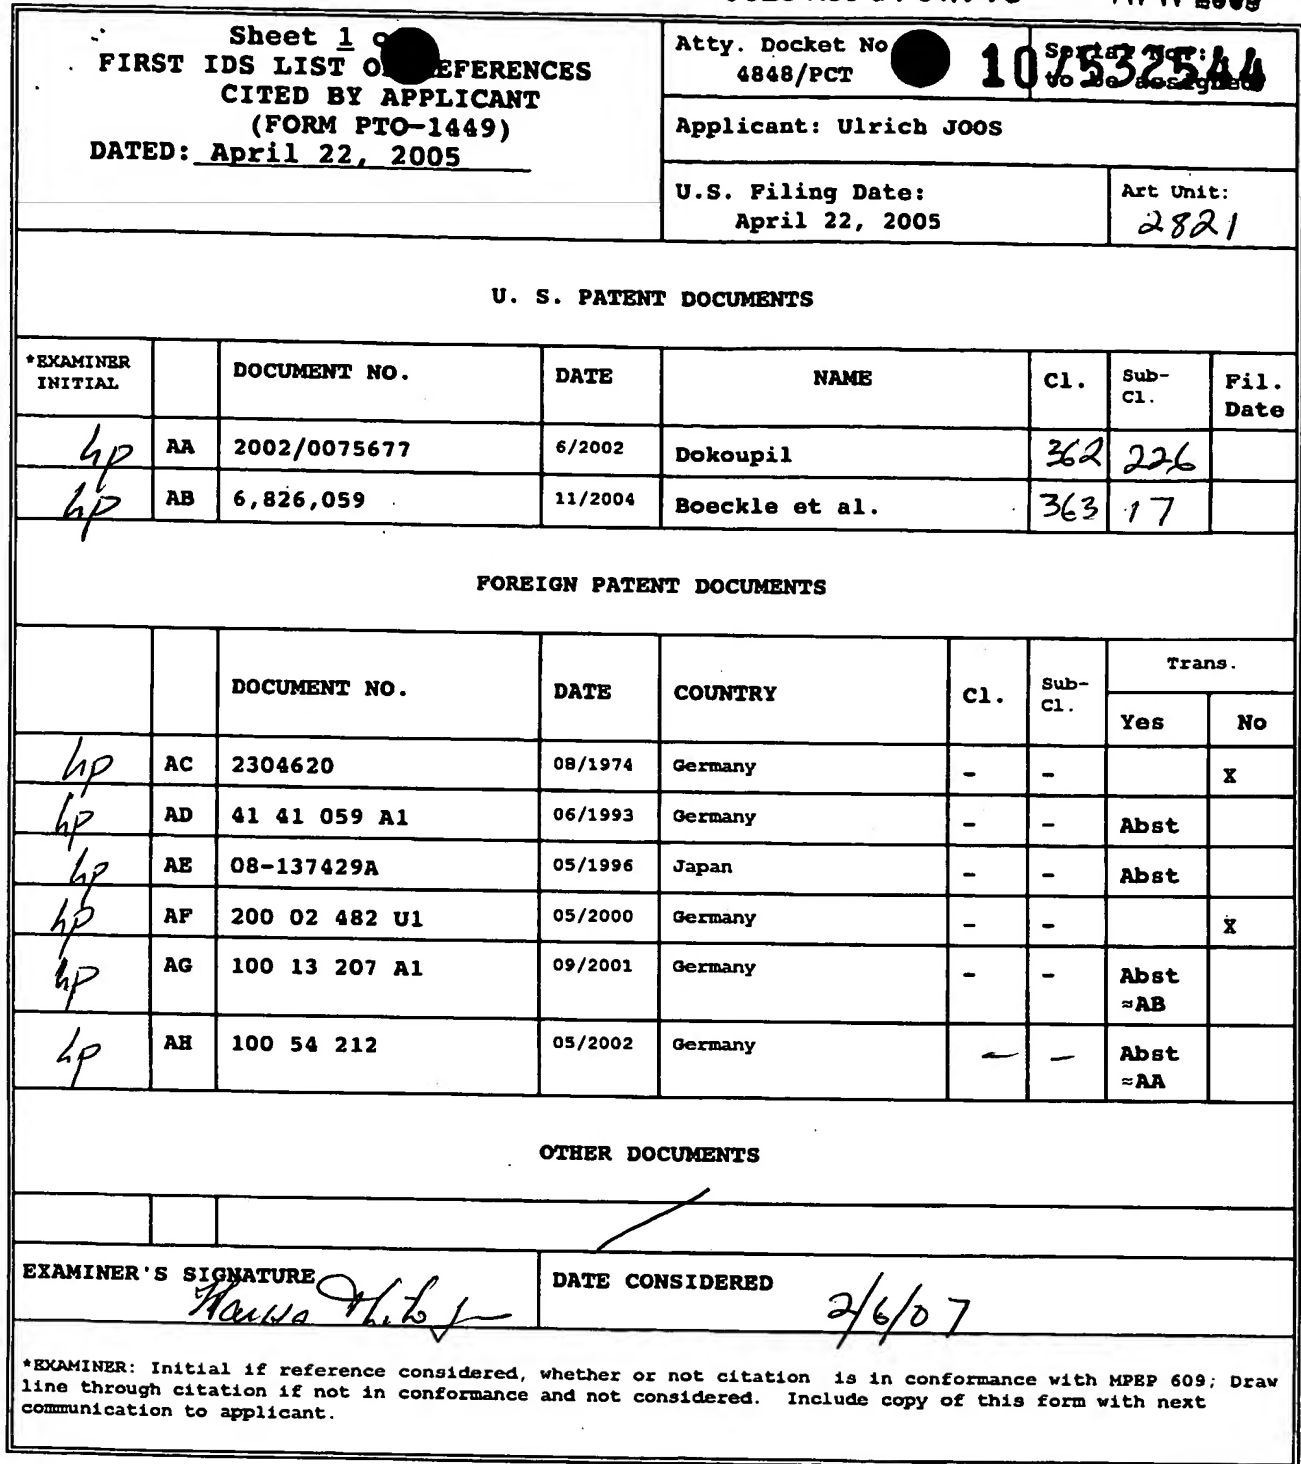 Sheet 1
FIRST IDS LIST OF REFERENCES
CITED BY APPLICANT
(FORM PTO-1449)
DATED: April 22, 2005
Atty. Docket No
4848/PCT
10/532544
Serial No.:
to be assigned
Applicant: Ulrich JOOS
U.S. Filing Date:
April 22, 2005
Art Unit:
2821
U. S. PATENT DOCUMENTS
*EXAMINER INITIAL DOCUMENT NO. DATE NAME Cl. Sub-Cl. Fil. Date
hp AA 2002/0075677 6/2002 Dokoupil 362 226
hp AB 6,826,059 11/2004 Boeckle et al. 363 17
FOREIGN PATENT DOCUMENTS
DOCUMENT NO. DATE COUNTRY Cl. Sub-Cl. Trans.
Yes No
hp AC 2304620 08/1974 Germany - - X
hp AD 41 41 059 A1 06/1993 Germany - - Abst
hp AE 08-137429A 05/1996 Japan - - Abst
hp AF 200 02 482 U1 05/2000 Germany - - X
hp AG 100 13 207 A1 09/2001 Germany - - Abst
≈AB
hp AH 100 54 212 05/2002 Germany - - Abst
≈AA
OTHER DOCUMENTS
EXAMINER'S SIGNATURE
DATE CONSIDERED 2/6/07
*EXAMINER: Initial if reference considered, whether or not citation is in conformance with MPEP 609; Draw
line through citation if not in conformance and not considered. Include copy of this form with next
communication to applicant.